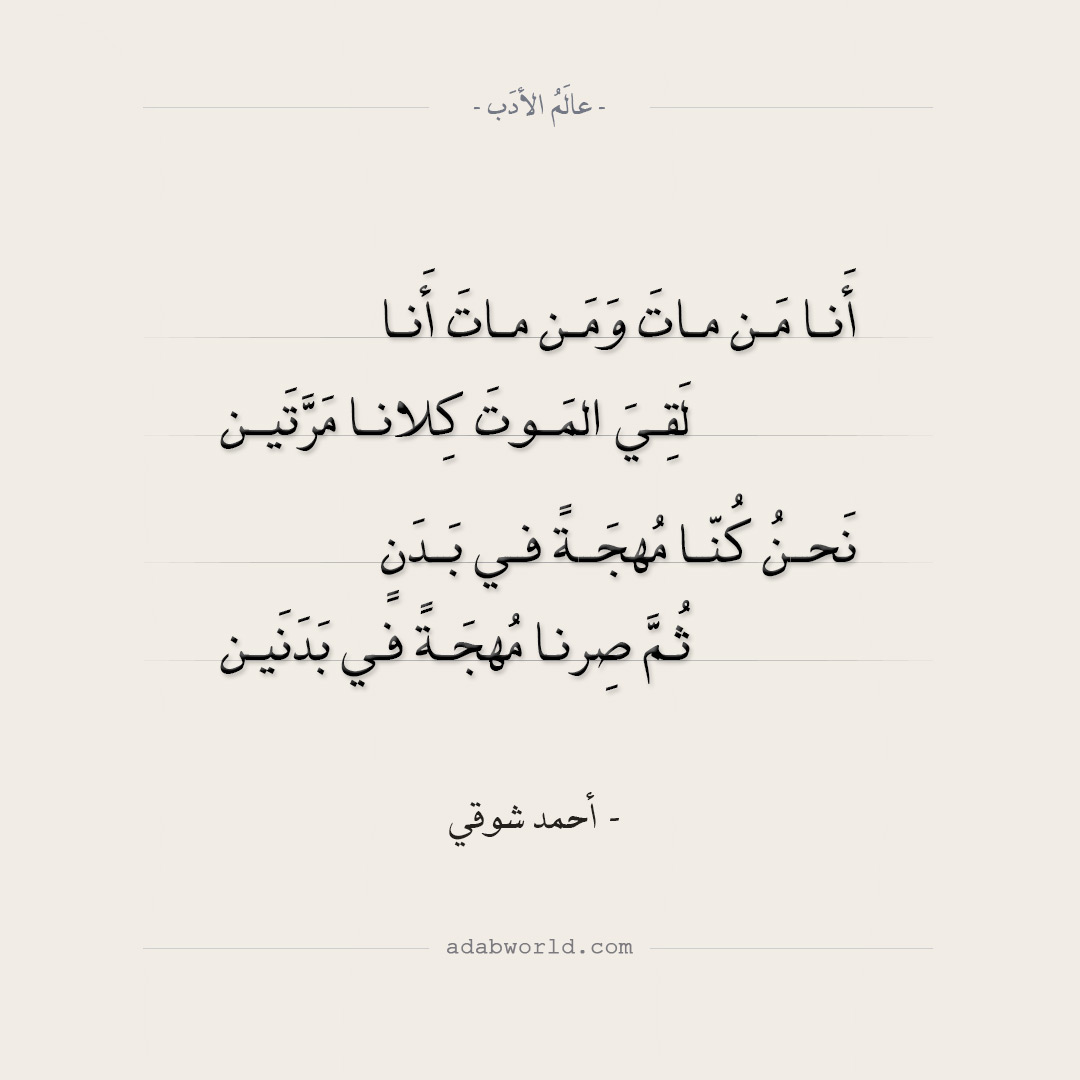 - عالَمُ الأدَب -
أَنـا مَـن مـاتَ وَمَـن مـاتَ أَنـا
لَقِـيَ المَـوتَ كِلانـا مَرَّتَيـن
نَحـنُ كُنّـا مُهجَـةً فـي بَـدَنٍ
ثُـمَّ صِرنـا مُهجَـةً فـي بَدَنَيـن
- أحمد شوقي
adabworld.com